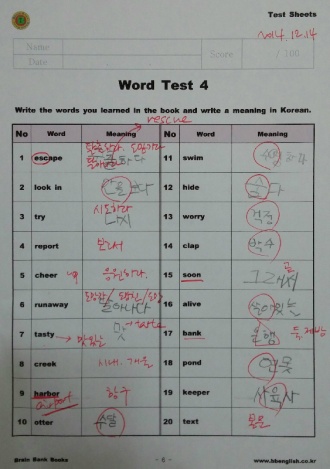 Test Sheets
2014. 12. 14
Name
Date
Score
/ 100
Word Test 4
Write the words you learned in the book and write a meaning in Korean.
rescue
No Word Meaning No Word Meaning
1 escape 11 swim 수영하다
2 look in 12 hide 숨다
3 try 시도하다 13 worry 걱정
4 report 보고서 14 clap 박수
5 cheer up 응원하다. 15 soon 그래서 곧
6 runaway 달아나다 16 alive 살아있는
7 tasty 맛있는 맛 17 bank 은행 둑, 제방
8 creek 시내, 개울 18 pond 연못
9 harbor 항구 19 keeper 사육사
airport
10 otter 수달 20 text 본문
Brain Bank Books
- 6 -
www.bbenglish.co.kr